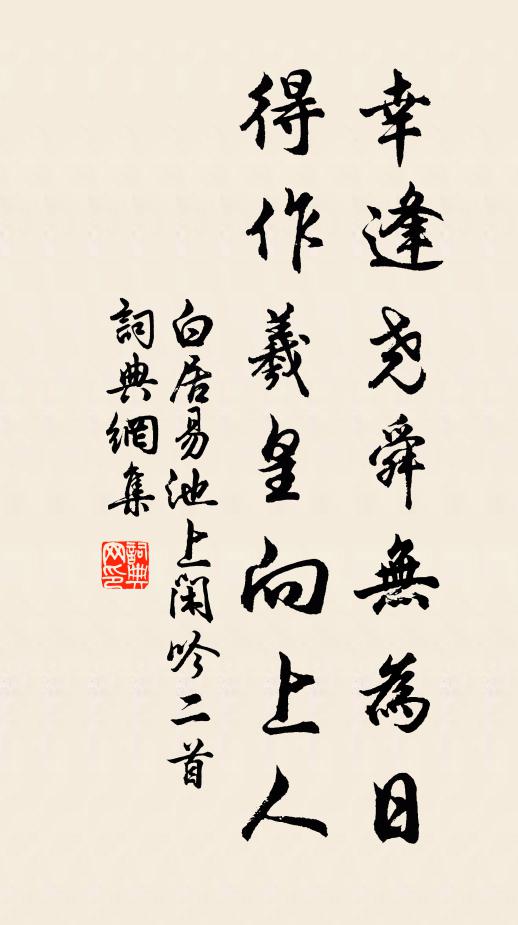 幸逢尧舜無為日
得作羲皇向上人
白居易池上闲吟二首
詞典網集
詞典网印